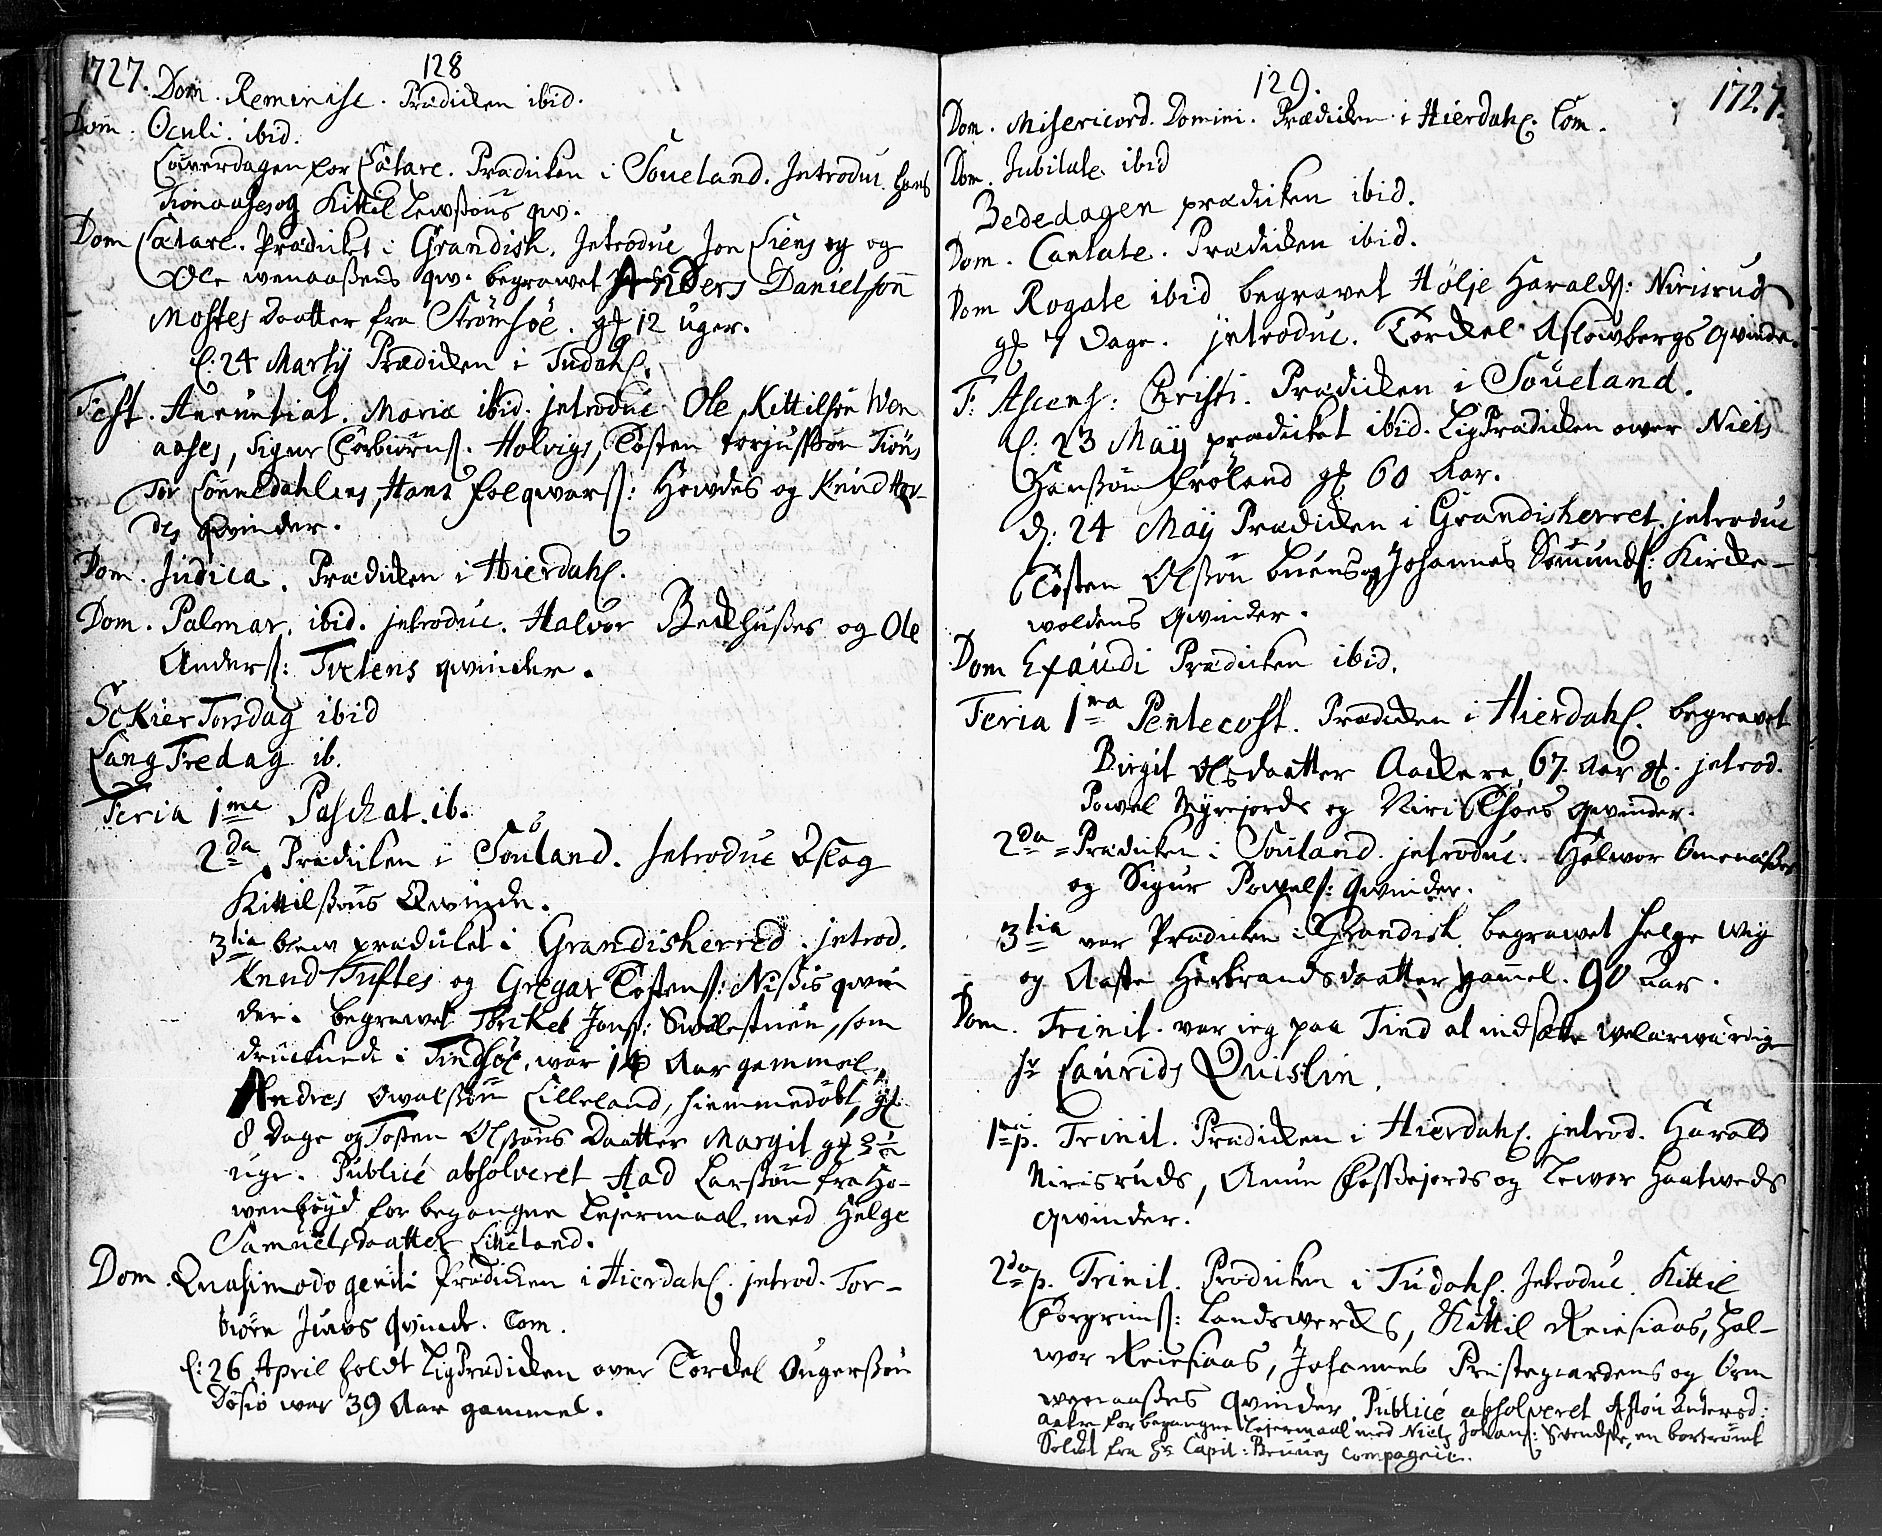 1727. 128
Dom. Reminisc. Prædicken ibid.
Dom. Oculi. ibid.
Løverdagen for Lætare. Prædicken i Soueland. Introduc. Hans
og Kittil Lewßøns qv.
Dom Lætare. Prædicket i Grandish. Introduc Jon Liens og
Ole wenaaßens qv. begrawet Anders Danielsøn
Mostes Daatter fra Strømsøe. gl 12 uger.
d: 24 Martij Prædicken i Tudahl.
Fest. Anuntiat. Mariæ ibid. jntroduc Ole Kittilsøn Wen
aases, Sigur Torbiørns. Holvigs, Tosten torjusßøn Tiøns
Tor Lønnedahlens, Hans folqwarß: Howdes og Knud How-
des qvinder.
Dom. Judica. Prædicken i Hierdahl.
Dom. Palmar. ibid. jntroduc. Halvor Beckhußes og Ole
Anderß: Tvetens qvinder.
Sckier Torsdag ibid
Lang Fredag ib.
Feria 1me Paschat. ib.
2da Prædicken i Souland. Introduc Aslag
Kittilßøns Qwinde.
3tia blew prædicket i Grandisherred. jntrod.
Knud Tuftes og Gregar Tostenß: Nißis qwin
der. begrawet Torkel Jonß: Swalestuen, som
druknede i Tindsøe, war 16 Aar gammel,
Andres owalßøn Lilleland, hiemmedøbt, gl.
8 Dage og Tosten Olßøns Daatter Margit gl 3 1/2
uge. Publicé absolveret Aad Larßøn fra Ho-
wenbøyd for begangne Lejermaal med Helge
Samuelsdaatter Lilleland.
Dom. Quasimodo geniti Prædicken i Hierdahl. jntrod. Tor-
biørn Juuvs qvinde. Com.
d: 26 April holdt Ligprædicken over Torckel Ougerßøn
Døsiø war 39 Aar gammel.
129. 1727.
Dom. Misericord. Domini. Prædicken i Hierdahl. Com.
Dom. Jubilate. ibid
Bededagen prædicken ibid.
Dom. Cantate. Prædicken ibid.
Dom Rogate ibid begravet Hølje Haralds: Nirisrud
gl 7 Dage. jntroduc. Torckel Aslowbergs qvinde.
F: Ascens: Christi. Prædicken i Soueland.
d: 23 Maij prædicket ibid. LigPrædicken over Niels
Hanßøn frøland gl 60 Aar.
d: 24 Maij Prædicken i Grandisherret. jntroduc
Tosten Olßøn buens og Johannes Somunds: Kircke-
woldens qwinder.
Dom Exaudi Prædicken ibid.
Feria 1ma Pentecost. Prædicken i Hierdahl. begravet
Birgit Olsdaatter Aackere, 67. Aar gl. jntrod.
Powel Myrejords og Niri qwinder.
2da Prædicken i Souland. jntroduc. Halwor Omenaaßes
og Sigur Powels: qwinder.
3tia var Prædicken i Grandish. begrawet Helge
og Aaste Herbrandsdaatter gammel. 90 Aar.
Dom. Trinit. var jeg paa Tind at indsætte welærwærdige
Hr Laurids Quislin.
1ma p. Trinit. Prædicken i Hierdahl. jntrod. Harald
Nirisruds, Amun Foßsejords og Lewor Haatweds
qwinder.
2da p. Trinit. Prædicken i Tudahl. Introduc. Kittil
Torgrims: Landswercks, Kittil Reiesiaas, Hal-
wor Reiesiaas, Johannes Pristegaardens og Orm
wenaaßes qwinder. Publicé absolveret Anders d:
for begangne Lejermaal med Niels Johans: Svendske, en bortrømt
Soldat fra Hr Capit: Bruuns Compagnie.